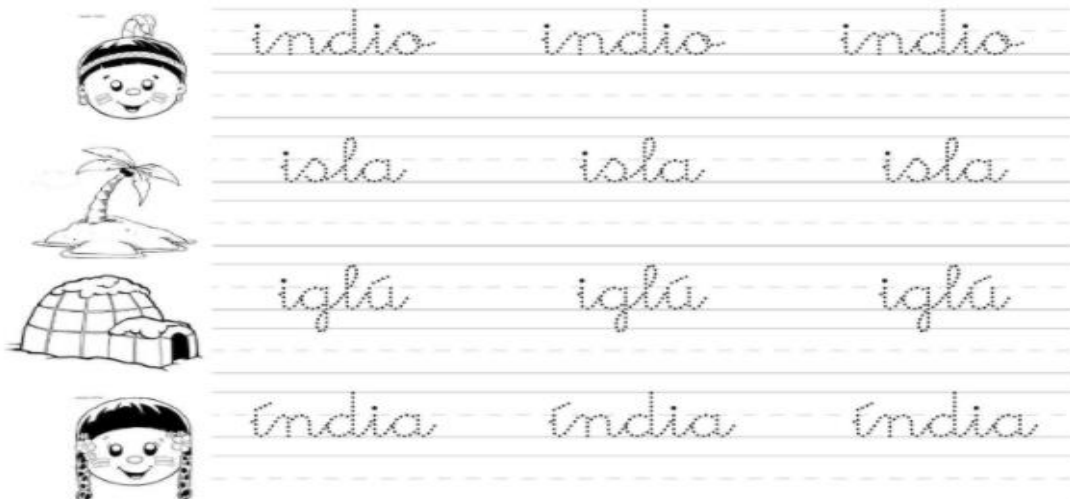 indio indio indio
isla isla isla
iglú iglú iglú
índia índia índia